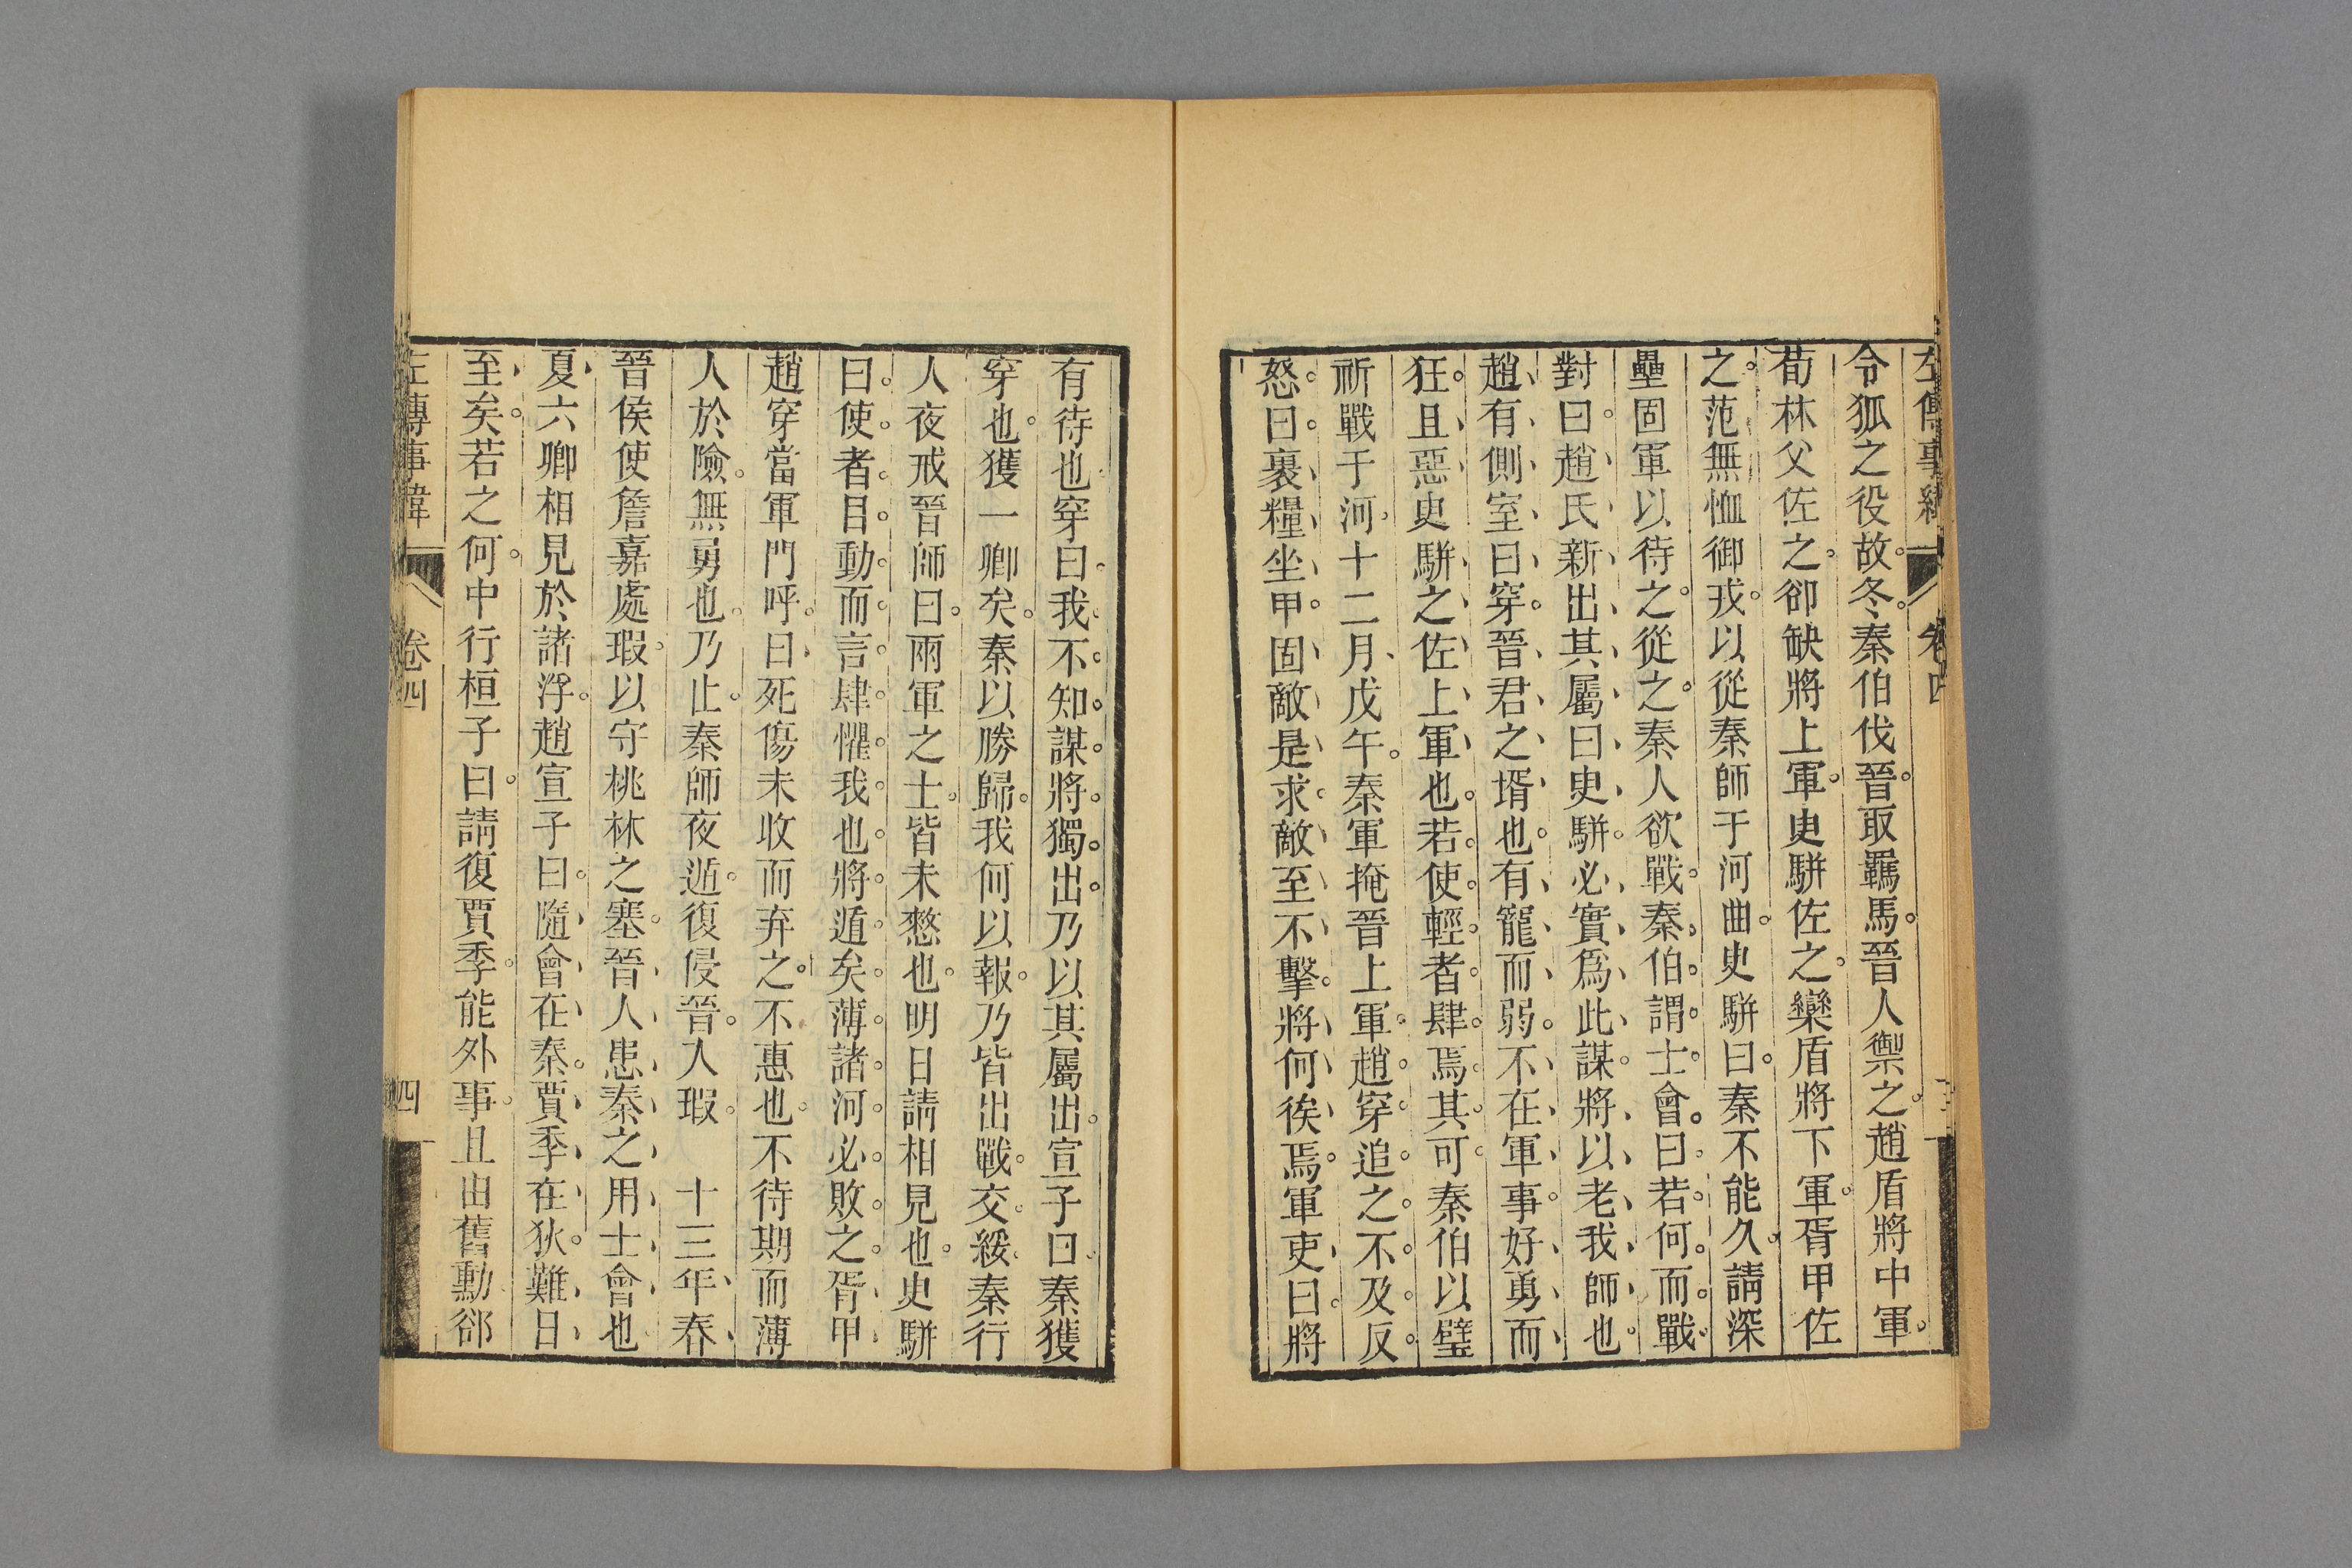 左傳事緯
卷四
令狐之役故冬秦伯伐晉取羈馬晉人禦之趙盾將中軍
荀林父佐之郤缺將上軍臾駢佐之欒盾將下軍胥甲佐
之范無恤御戎以從秦師于河曲臾駢曰秦不能久請深
壘固軍以待之從之秦人欲戰秦伯謂士會曰若何而戰
對曰趙氏新出其屬曰臾駢必實爲此謀將以老我師也
趙有側室曰穿晉君之壻也有寵而弱不在軍事好勇而
狂且惡臾駢之佐上軍也若使輕者肆焉其可秦伯以璧
祈戰于河十二月戊午秦軍掩晉上軍趙穿追之不及反
怒曰裹糧坐甲固敵是求敵至不擊將何俟焉軍吏曰將
有待也穿曰我不知謀將獨出乃以其屬出宣子曰秦獲
穿也獲一卿矣秦以勝歸我何以報乃皆出戰交綏秦行
人夜戒晉師曰兩軍之士皆未憖也明日請相見也臾駢
曰使者目動而言肆懼我也將遁矣薄諸河必敗之胥甲
趙穿當軍門呼曰死傷未收而弃之不惠也不待期而薄
人於險無勇也乃止秦師夜遁復侵晉入瑕　十三年春
晉侯使詹嘉處瑕以守桃林之塞晉人患秦之用士會也
夏六卿相見於諸浮趙宣子曰隨會在秦賈季在狄難日
至矣若之何中行桓子曰請復賈季能外事且由舊勳郤
左傳事緯
卷四
四